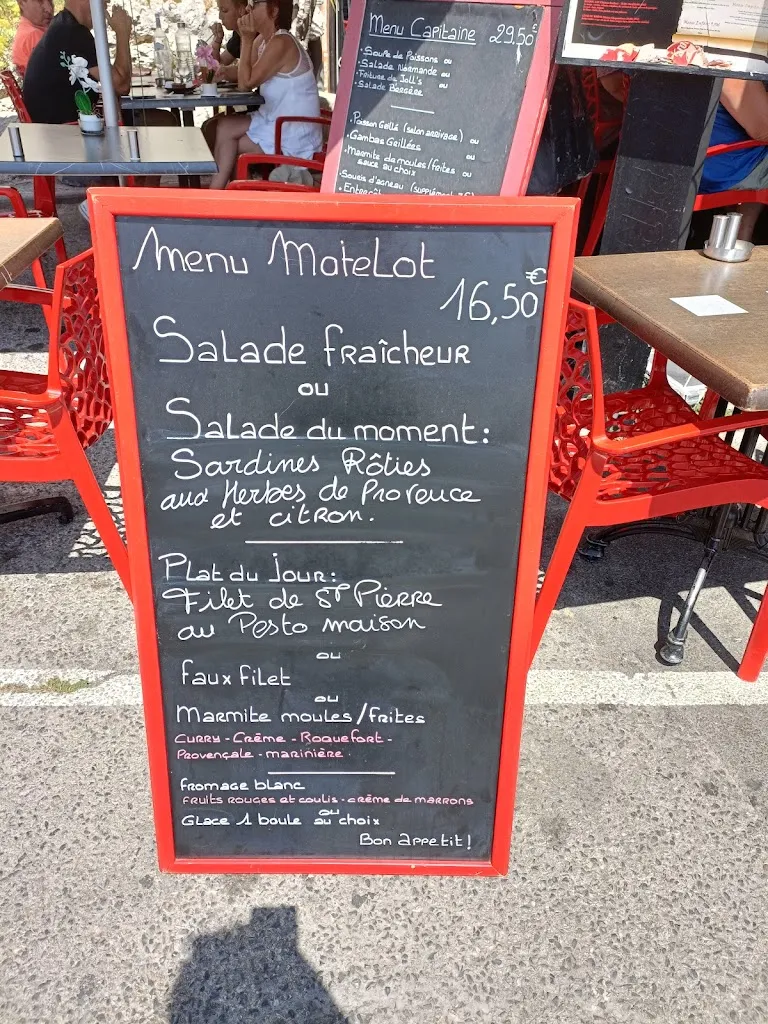 Menu Capitaine 29.50€
• Soupe de Poissons ou
• Salade Normande ou
• Friture de Joll's ou
• Salade Bergère
• Poisson Grillé (selon arrivage) ou
• Gambas Grillées ou
• Marmite de moules/frites ou
sauce au choix
• Souris d'agneau (supplément
• Entrecôt
Menu Matelot
16,50€
Salade fraîcheur
ou
Salade du moment:
Sardines Rôties
aux Herbes de Provence
et citron.
Plat du jour:
Filet de St Pierre
au Pesto maison
ou
faux filet
ou
Marmite moules/frites
Curry - Crème - Roquefort -
Provençale - marinière.
fromage blanc
fruits rouges et coulis - crème de marrons
ou
Glace 1 boule au choix
Bon appetit!